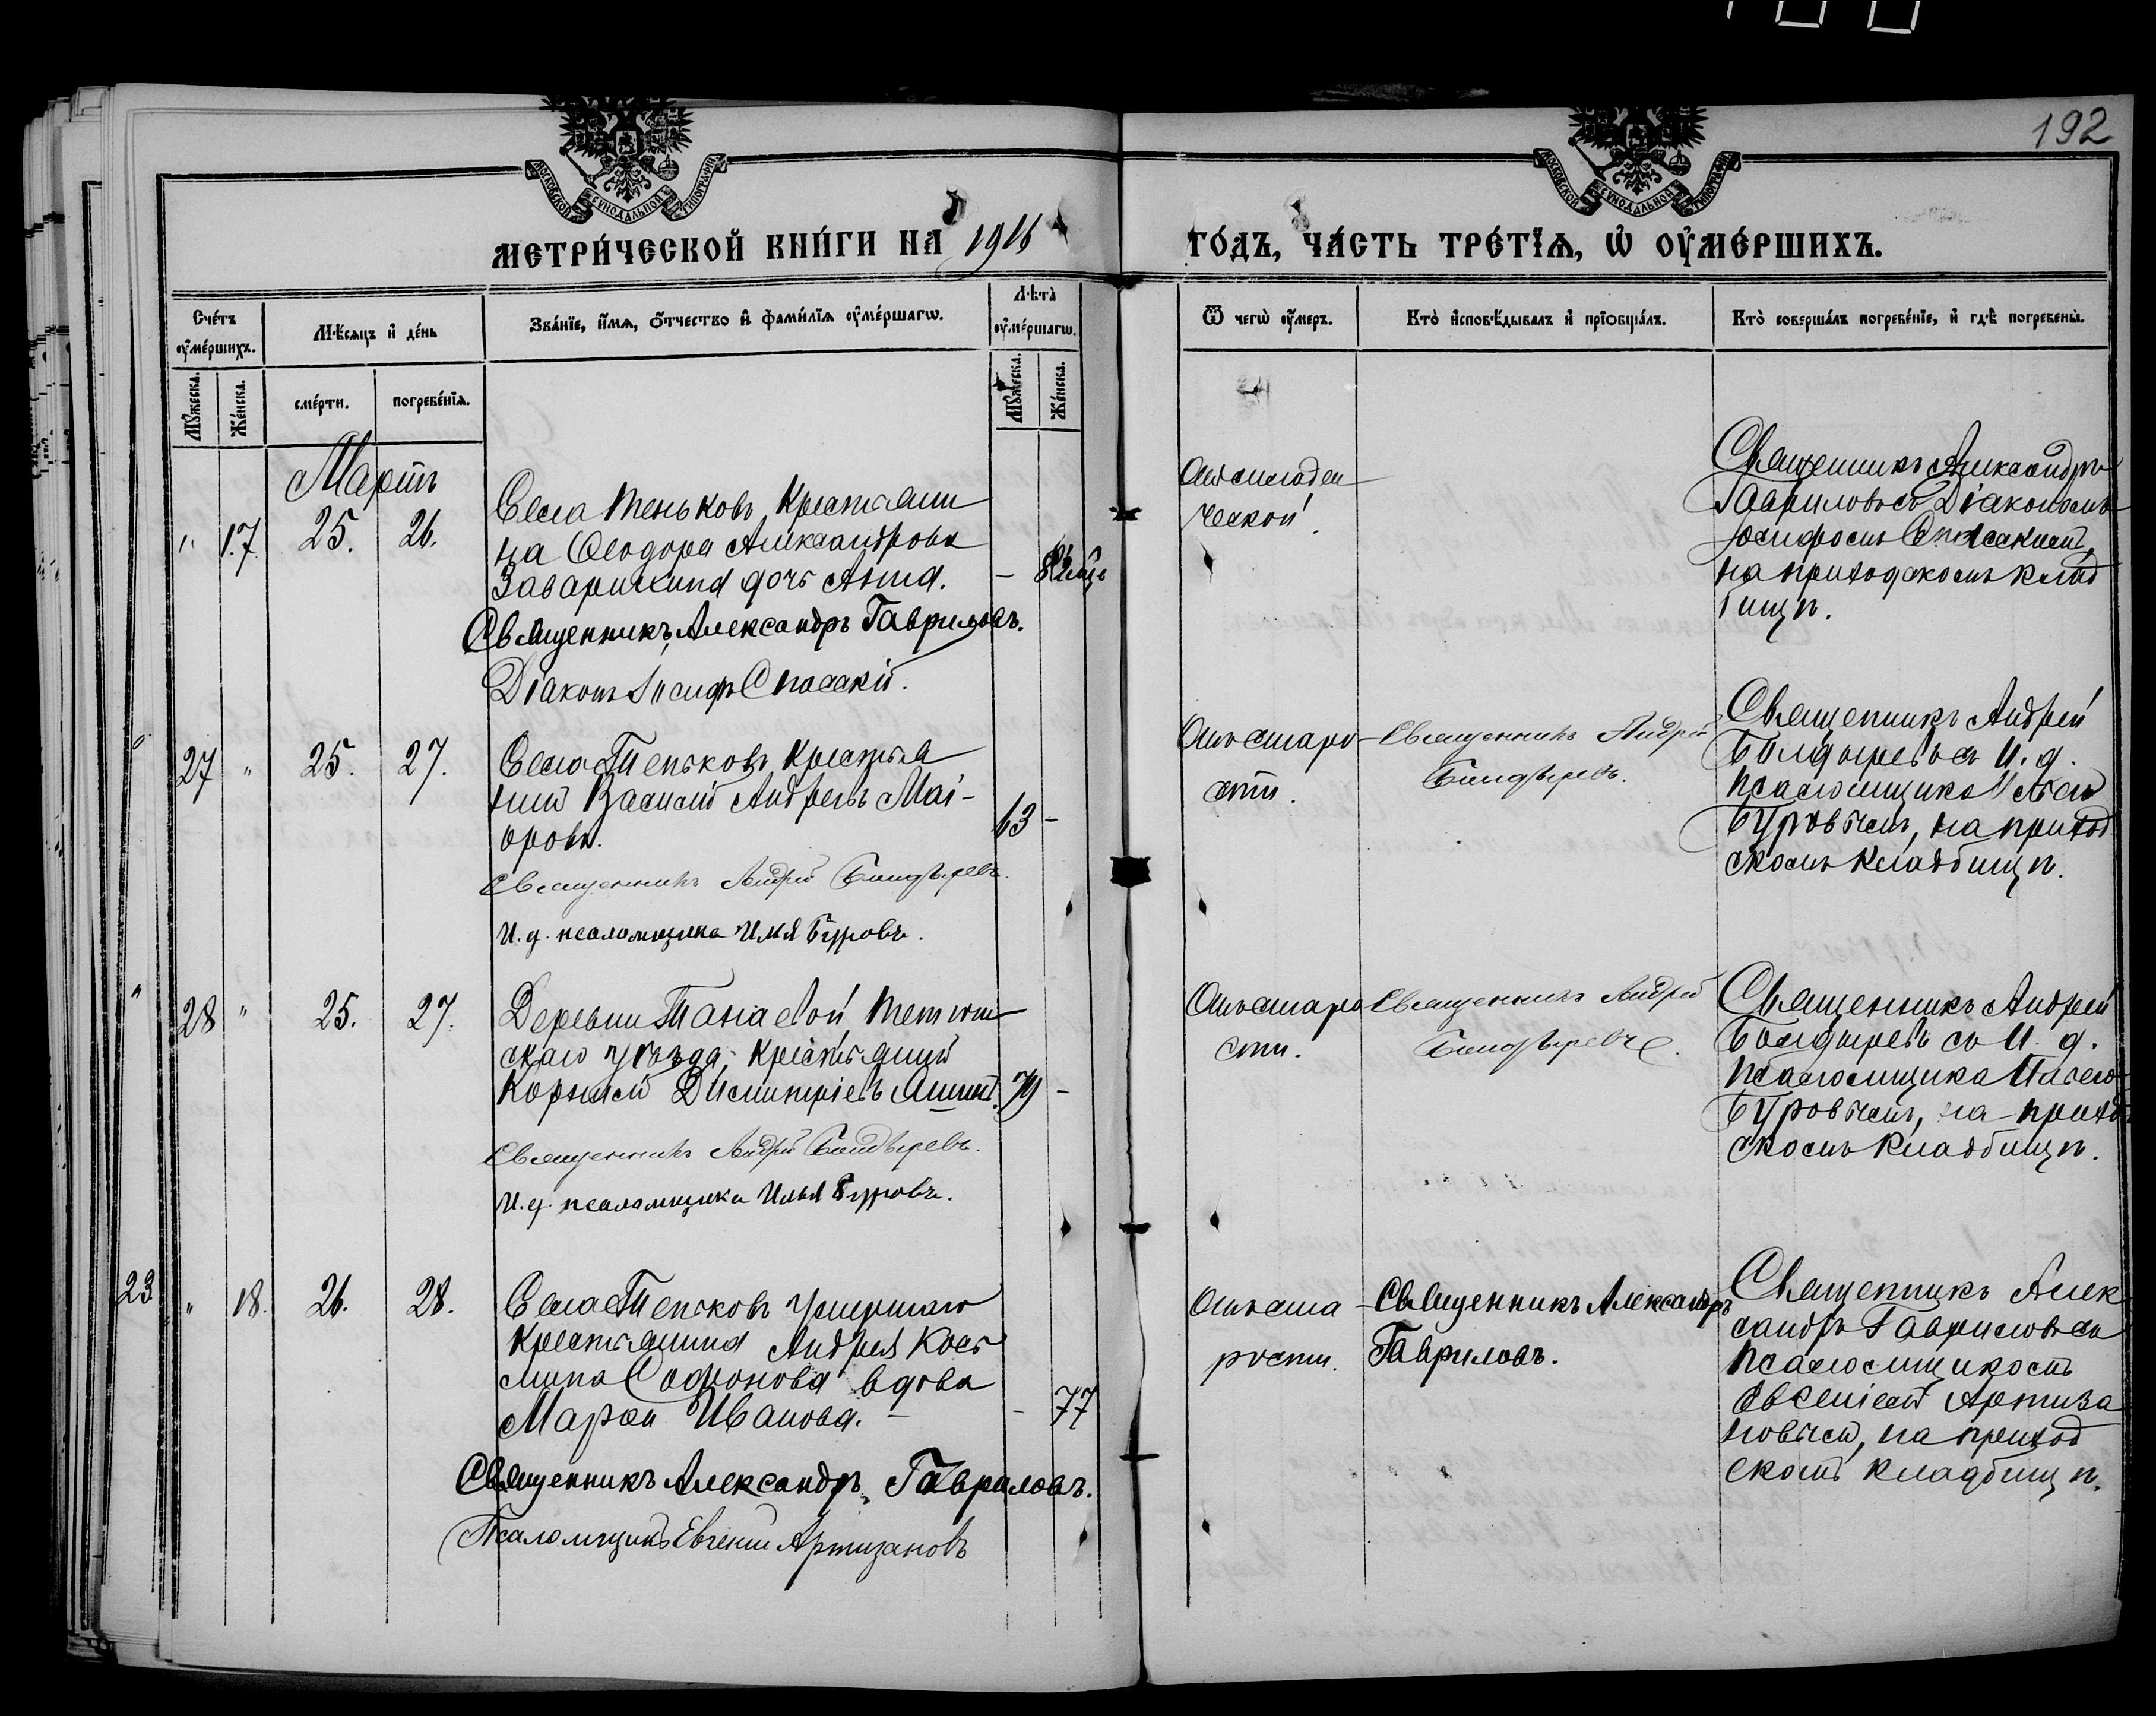 192
МОСКОВСКОЙ СѴНОДАЛЬНОЙ ТИПОГРАФІИ
МОСКОВСКОЙ СѴНОДАЛЬНОЙ ТИПОГРАФІИ
МЕТРИ́ЧЕСКОЙ КНИ́ГИ НА 1916
ГО́ДЪ, ЧА́СТЬ ТРЕ́ТЇѦ, Ѡ҆ ОУ҆МЕ́РШИХЪ.
Сче́тъ оу҆ме́ршихъ.
Мѣ́сѧцъ и҆ де́нь
Зва́нїе, и҆́мѧ, ѻ҆́тчество и҆ фами́лїѧ оу҆ме́ршагѡ.
Лѣта̀ оу҆ме́ршагѡ.
Ѿ чегѡ̀ оу҆́меръ.
Кто̀ и҆сповѣ́дывалъ и҆ прїѻбща́лъ.
Кто̀ соверша́лъ погребе́нїе, и҆ гдѣ̀ погребены̀.
Мꙋ́жеска.
Же́нска.
сме́рти.
погребе́нїѧ.
Мꙋ́жеска.
Же́нска.
Мартъ
" 17. 25. 26.
Села Теньковъ, крестьяни
на Ѳеодора Александрова
Заварихина дочь Анна.
-
Священникъ Александръ Гавриловъ.
Діаконъ Іосифъ Спасскій.
Отъ младен
ческой.
Священникъ Александръ
Гавриловъ съ Діакономъ
Іосифомъ Спасскимъ,
на приходскомъ клад
бищѣ.
27 " 25. 27.
Села Теньковъ крестья
нинъ Василій Андреевъ Маі-
оровъ.
63 -
Священникъ Андрей Болдыревъ.
И. д. псаломщика Илья Буровъ.
Отъ старо
сти.
Священникъ Андрей
Болдыревъ.
Священникъ Андрей
Болдыревъ съ И. д.
псаломщика Ильею
Буровымъ, на приход
скомъ кладбищѣ.
28 " 25. 27.
Деревни Танаевой, Тетюш
скаго уѣзда, крестьянинъ
Корнилій Димитріевъ
79 -
Священникъ Андрей Болдыревъ.
И. д. псаломщика Илья Буровъ.
Отъ старо
сти.
Священникъ Андрей
Болдыревъ.
Священникъ Андрей
Болдыревъ съ И. д.
псаломщика Ильею
Буровымъ, на приход
скомъ кладбищѣ.
23 " 18. 26. 28.
Села Теньковъ умершаго
крестьянина Андрея Кось
мина Софронова вдова
Марѳа Иванова.
- 77
Священникъ Александръ Гавриловъ.
Псаломщикъ Евгеній Артизановъ
Отъ ста
рости.
Священникъ Александръ
Гавриловъ.
Священникъ Алек
сандръ Гавриловъ съ
псаломщикомъ
Евгеніемъ Артиза
новымъ, на приход
скомъ кладбищѣ.